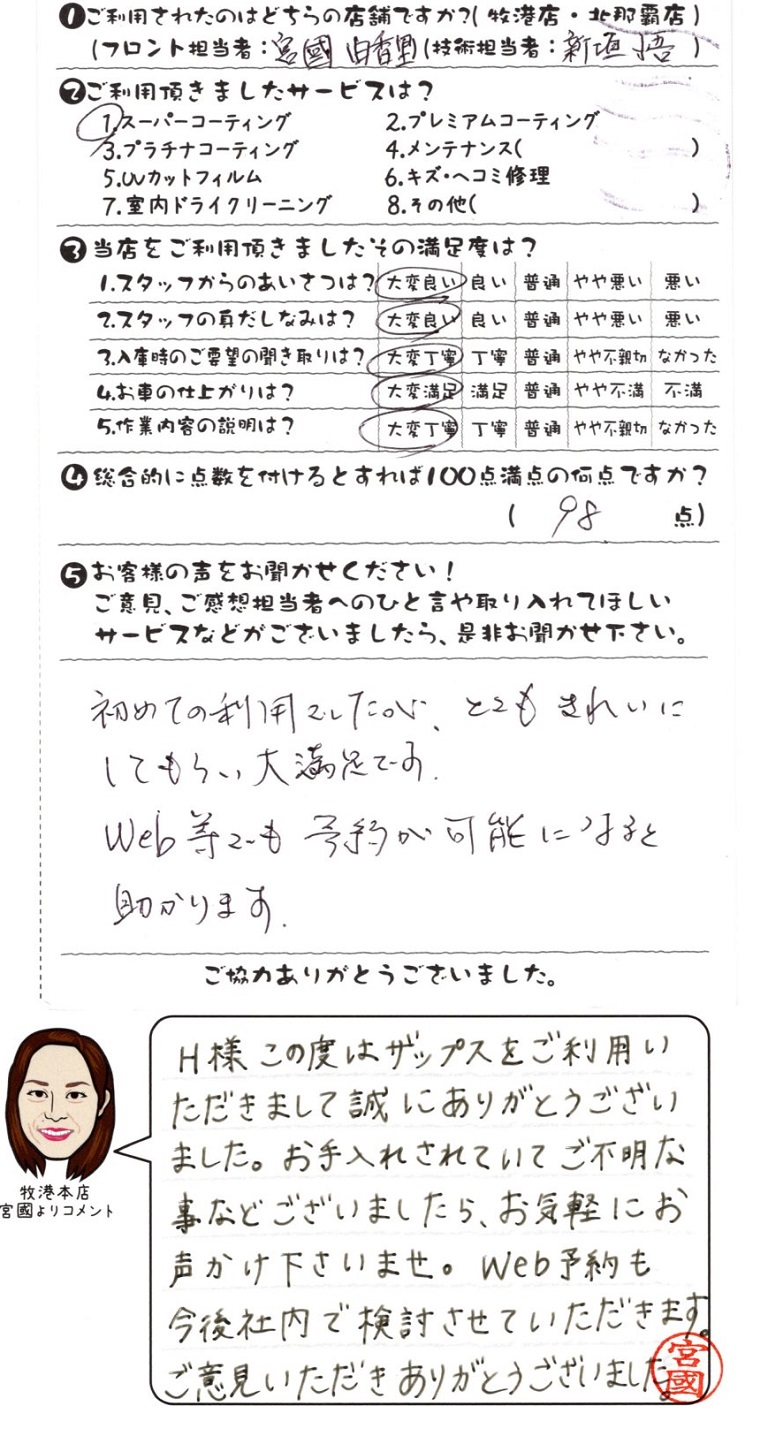 ❶ご利用されたのはどちらの店舗ですか?(牧港店・北那覇店)
(フロント担当者:宮國 由香里(技術担当者:新垣 悟)
❷ご利用頂きましたサービスは?
1.スーパーコーティング 2.プレミアムコーティング
3.プラチナコーティング 4.メンテナンス( )
5.UVカットフィルム 6.キズ・ヘコミ修理
7.室内ドライクリーニング 8.その他( )
❸当店をご利用頂きましたその満足度は?
1.スタッフからのあいさつは? 大変良い 良い 普通 やや悪い 悪い
2.スタッフの身だしなみは? 大変良い 良い 普通 やや悪い 悪い
3.入庫時のご要望の聞き取りは? 大変丁寧 丁寧 普通 やや不親切 なかった
4.お車の仕上がりは? 大変満足 満足 普通 やや不満 不満
5.作業内容の説明は? 大変丁寧 丁寧 普通 やや不親切 なかった
❹総合的に点数を付けるとすれば100点満点の何点ですか?
( 98 点)
❺お客様の声をお聞かせください!
ご意見、ご感想担当者へのひと言や取り入れてほしい
サービスなどがございましたら、是非お聞かせ下さい。
初めての利用でしたが、とてもきれいに
してもらい大満足です.
Web等でも予約が可能になると
助かります.
ご協力ありがとうございました。
H様 この度はザップスをご利用い
ただきまして誠にありがとうござい
ました。お手入れされていてご不明な
事などございましたら、お気軽にお
声かけ下さいませ。Web予約も
今後社内で検討させていただきます。
ご意見いただきありがとうございました。
宮國
牧港本店
宮國よりコメント